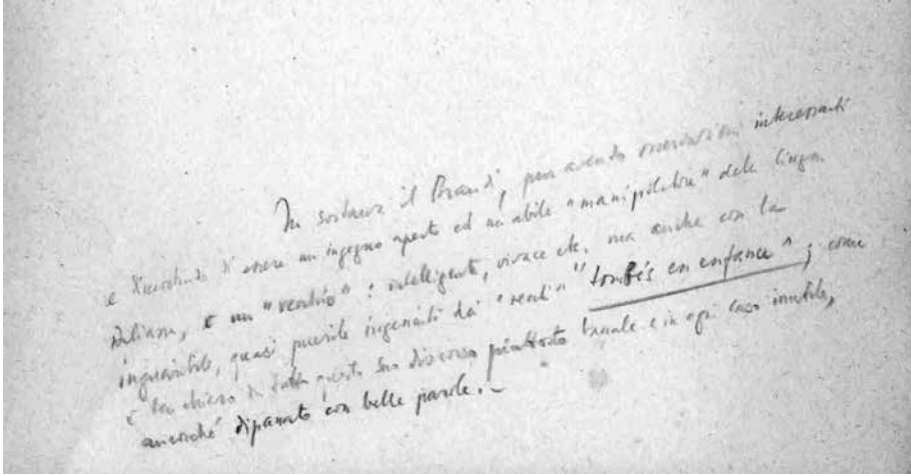 In sostanza il Brandi, pur avendo osservazioni interessanti
e dimostrando d'essere un ingegno aperto ed un abile "manipolatore" della lingua
italiana, è un "vecchio": intelligente, vivace etc. ma anche con la
inguaribile, quasi puerile ingenuità dei "vecchi" "tombés en enfance"; come
è ben chiaro in tutto questo suo discorso piuttosto banale e in ogni caso inutile,
ancorché dipanato con belle parole.–